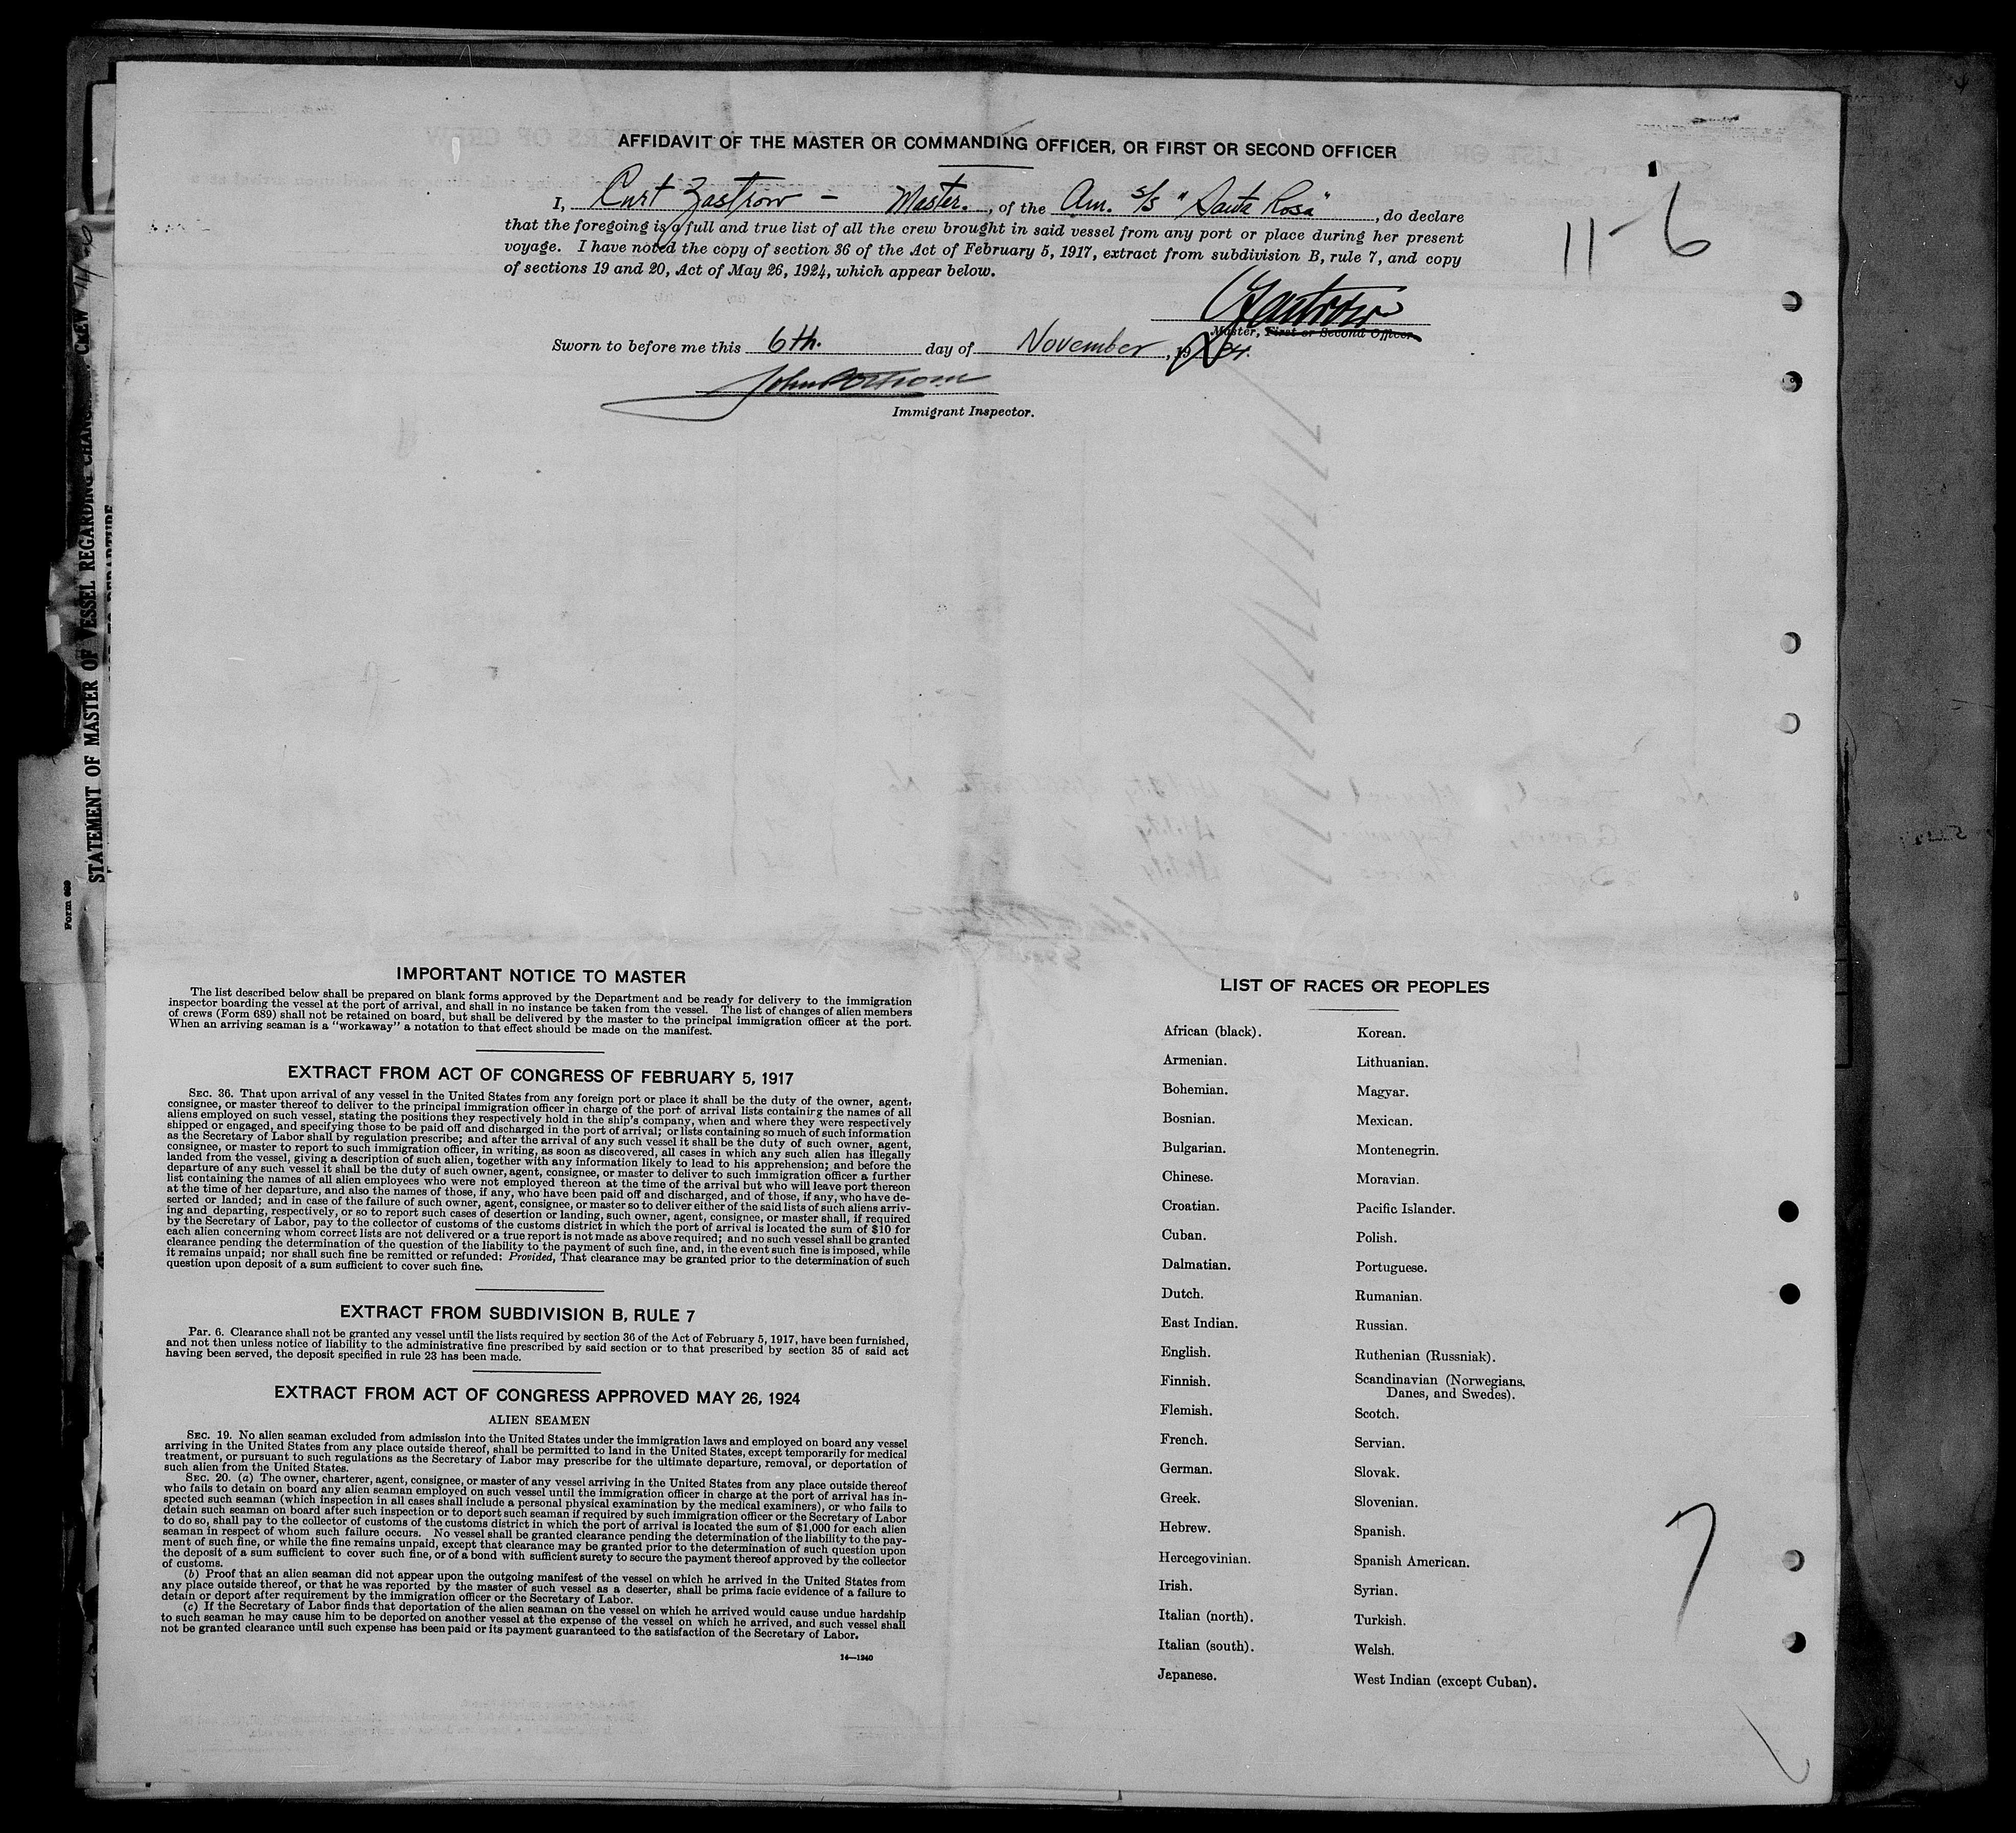 AFFIDAVIT OF THE MASTER OR COMMANDING OFFICER, OR FIRST OR SECOND OFFICER
I, Curt Zastrow - Master., of the Am. s/s "Santa Rosa", do declare
that the foregoing is a full and true list of all the crew brought in said vessel from any port or place during her present
voyage. I have noted the copy of section 36 of the Act of February 5, 1917, extract from subdivision B, rule 7, and copy
of sections 19 and 20, Act of May 26, 1924, which appear below.
11-6
CZastrow
Master, First or Second Officer
Sworn to before me this 6th. day of November, 1934.
Immigrant Inspector.
STATEMENT OF MASTER OF VESSEL REGARDING CHANG
CREW
Form 689
IMPORTANT NOTICE TO MASTER
The list described below shall be prepared on blank forms approved by the Department and be ready for delivery to the immigration
inspector boarding the vessel at the port of arrival, and shall in no instance be taken from the vessel. The list of changes of alien members
of crews (Form 689) shall not be retained on board, but shall be delivered by the master to the principal immigration officer at the port.
When an arriving seaman is a "workaway" a notation to that effect should be made on the manifest.
EXTRACT FROM ACT OF CONGRESS OF FEBRUARY 5, 1917
SEC. 36. That upon arrival of any vessel in the United States from any foreign port or place it shall be the duty of the owner, agent,
consignee, or master thereof to deliver to the principal immigration officer in charge of the port of arrival lists containing the names of all
aliens employed on such vessel, stating the positions they respectively hold in the ship's company, when and where they were respectively
shipped or engaged, and specifying those to be paid off and discharged in the port of arrival; or lists containing so much of such information
as the Secretary of Labor shall by regulation prescribe; and after the arrival of any such vessel it shall be the duty of such owner, agent,
consignee, or master to report to such immigration officer, in writing, as soon as discovered, all cases in which any such alien has illegally
landed from the vessel, giving a description of such alien, together with any information likely to lead to his apprehension; and before the
departure of any such vessel it shall be the duty of such owner, agent, consignee, or master to deliver to such immigration officer a further
list containing the names of all alien employees who were not employed thereon at the time of the arrival but who will leave port thereon
at the time of her departure, and also the names of those, if any, who have been paid off and discharged, and of those, if any, who have de-
serted or landed; and in case of the failure of such owner, agent, consignee, or master so to deliver either of the said lists of such aliens arriv-
ing and departing, respectively, or so to report such cases of desertion or landing, such owner, agent, consignee, or master shall, if required
by the Secretary of Labor, pay to the collector of customs of the customs district in which the port of arrival is located the sum of $10 for
each alien concerning whom correct lists are not delivered or a true report is not made as above required; and no such vessel shall be granted
clearance pending the determination of the question of the liability to the payment of such fine, and, in the event such fine is imposed, while
it remains unpaid; nor shall such fine be remitted or refunded: Provided, That clearance may be granted prior to the determination of such
question upon deposit of a sum sufficient to cover such fine.
EXTRACT FROM SUBDIVISION B, RULE 7
Par. 6. Clearance shall not be granted any vessel until the lists required by section 36 of the Act of February 5, 1917, have been furnished,
and not then unless notice of liability to the administrative fine prescribed by said section or to that prescribed by section 35 of said act
having been served, the deposit specified in rule 23 has been made.
EXTRACT FROM ACT OF CONGRESS APPROVED MAY 26, 1924
ALIEN SEAMEN
SEC. 19. No alien seaman excluded from admission into the United States under the immigration laws and employed on board any vessel
arriving in the United States from any place outside thereof, shall be permitted to land in the United States, except temporarily for medical
treatment, or pursuant to such regulations as the Secretary of Labor may prescribe for the ultimate departure, removal, or deportation of
such alien from the United States.
SEC. 20. (a) The owner, charterer, agent, consignee, or master of any vessel arriving in the United States from any place outside thereof
who fails to detain on board any alien seaman employed on such vessel until the immigration officer in charge at the port of arrival has in-
spected such seaman (which inspection in all cases shall include a personal physical examination by the medical examiners), or who fails to
detain such seaman on board after such inspection or to deport such seaman if required by such immigration officer or the Secretary of Labor
to do so, shall pay to the collector of customs of the customs district in which the port of arrival is located the sum of $1,000 for each alien
seaman in respect of whom such failure occurs. No vessel shall be granted clearance pending the determination of the liability to the pay-
ment of such fine, or while the fine remains unpaid, except that clearance may be granted prior to the determination of such question upon
the deposit of a sum sufficient to cover such fine, or of a bond with sufficient surety to secure the payment thereof approved by the collector
of customs.
(b) Proof that an alien seaman did not appear upon the outgoing manifest of the vessel on which he arrived in the United States from
any place outside thereof, or that he was reported by the master of such vessel as a deserter, shall be prima facie evidence of a failure to
detain or deport after requirement by the immigration officer or the Secretary of Labor.
(c) If the Secretary of Labor finds that deportation of the alien seaman on the vessel on which he arrived would cause undue hardship
to such seaman he may cause him to be deported on another vessel at the expense of the vessel on which he arrived, and such vessel shall
not be granted clearance until such expense has been paid or its payment guaranteed to the satisfaction of the Secretary of Labor.
14—1240
LIST OF RACES OR PEOPLES
African (black).
Armenian.
Bohemian.
Bosnian.
Bulgarian.
Chinese.
Croatian.
Cuban.
Dalmatian.
Dutch.
East Indian.
English.
Finnish.
Flemish.
French.
German.
Greek.
Hebrew.
Hercegovinian.
Irish.
Italian (north).
Italian (south).
Japanese.
Korean.
Lithuanian.
Magyar.
Mexican.
Montenegrin.
Moravian.
Pacific Islander.
Polish.
Portuguese.
Rumanian.
Russian.
Ruthenian (Russniak).
Scandinavian (Norwegians,
Danes, and Swedes).
Scotch.
Servian.
Slovak.
Slovenian.
Spanish.
Spanish American.
Syrian.
Turkish.
Welsh.
West Indian (except Cuban).
7